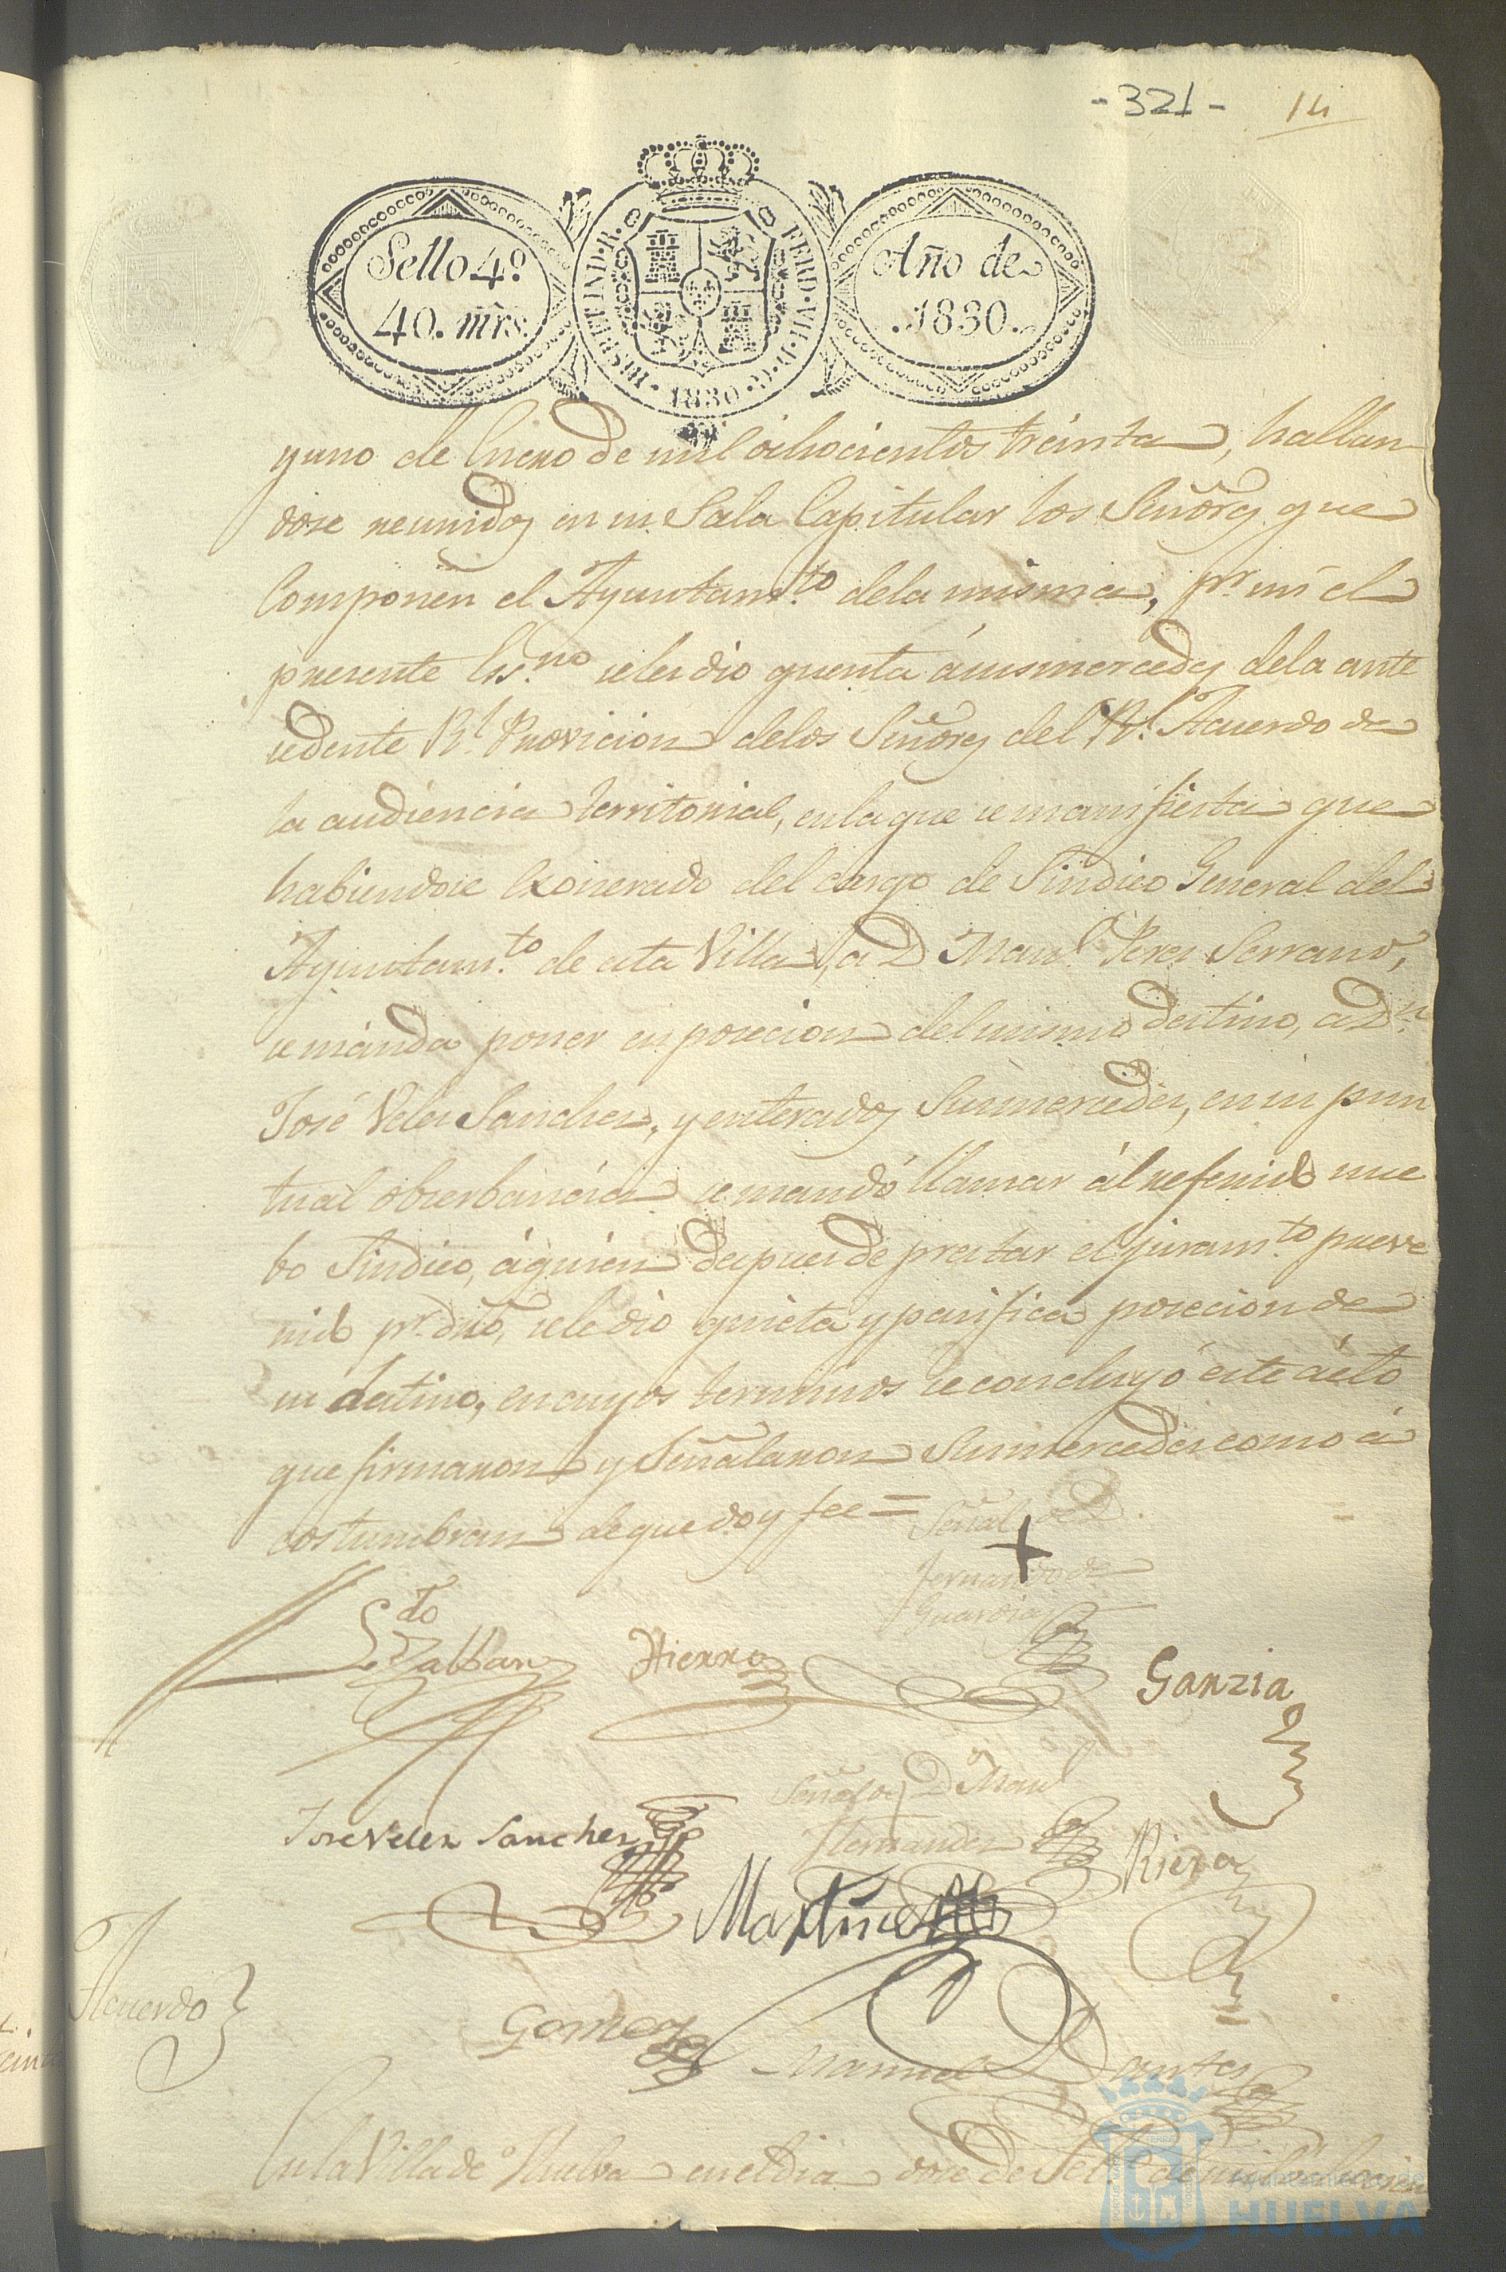 -321- 14
Sello 4º
40. mrs.
HISP. ET IND. R. FERD. VII. D. G. 1830.
Año de
.1830.
y uno de Enero de mil ochocientos treinta, hallan
dose reunidos en su Sala Capitular los Señores que
Componen el Ayuntam.to dela misma, pr. mi el
presente Ess.no se les dio quenta á sus mercedes dela ante
cedente Rl. Provicion delos Señores del Rl. Acuerdo de
la audiencia territorial, en la que se manifiesta que
habiendose Exonerado del cargo de Sindico General del
Ayuntam.to de esta Villa, a D Manl. Perez Serrano,
se mánda poner en posecion del mismo destino, a Dn.
José Velez Sanchez, y enterados Susmercedes, en su pun
tual obserbancia se mandó llamar ál referido nue
bo Sindico, á quien despues de prestar el juram.to preve
nido pr. dro, se le dio quieta y pasifica posecion de
su destino, en cuyos terminos se concluyó este ácto
que firmaron y Señalaron Susmercedes como á
costumbran de que doy fee =
Señal de D.
+
Fernando de
Guardia
Ldo
Zalban Hierro Garzia
Señal de D Manl
Jose Velez Sanchez Hernandez Riera
Martinez
Acuerdo Gomez
Manuel Dantes
En la Villa de Huelva en el dia doce de Set.e de mil ochocien
Ayuntamiento de
HUELVA